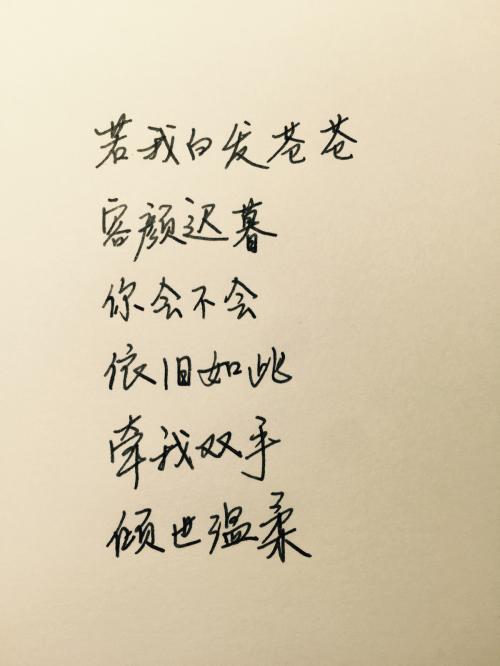 若我白发苍苍
容颜迟暮
你会不会
依旧如此
牵我双手
倾世温柔